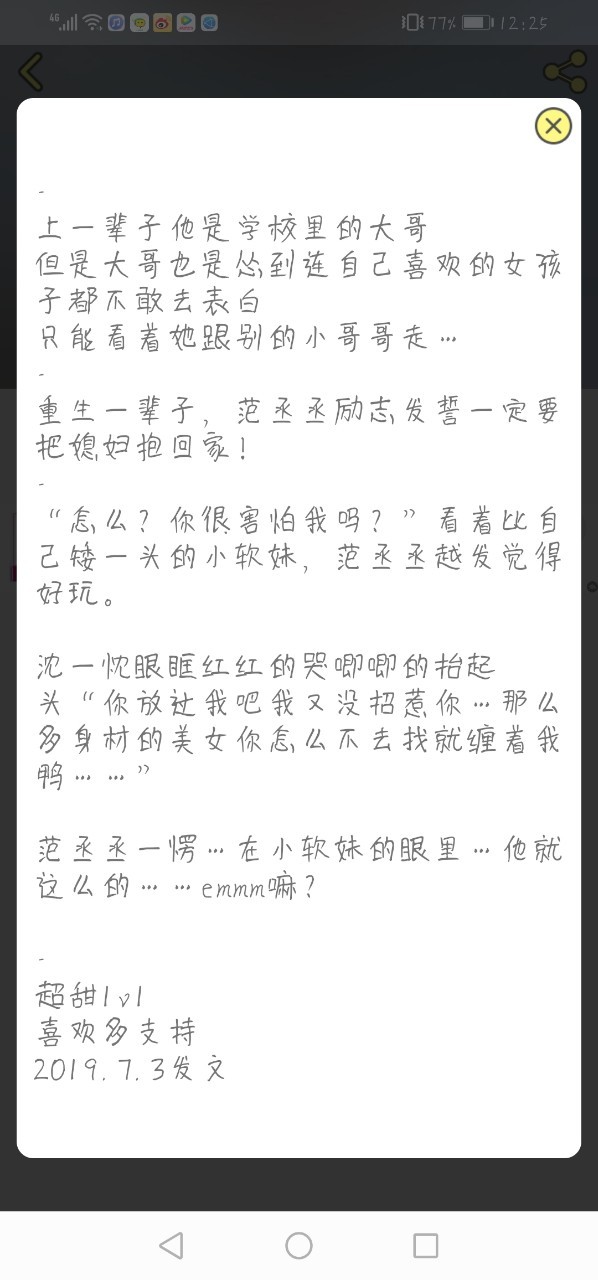 4G 77% 12:25
-
上一辈子他是学校里的大哥
但是大哥也是怂到连自己喜欢的女孩
子都不敢去表白
只能看着她跟别的小哥哥走…
-
重生一辈子，范丞丞励志发誓一定要
把媳妇抱回家！
-
“怎么？你很害怕我吗？”看着比自
己矮一头的小软妹，范丞丞越发觉得
好玩。
沈一忱眼眶红红的哭唧唧的抬起
头“你放过我吧我又没招惹你…那么
多身材的美女你怎么不去找就缠着我
鸭……”
范丞丞一愣…在小软妹的眼里…他就
这么的……emmm嘛？
-
超甜1v1
喜欢多支持
2019.7.3发文